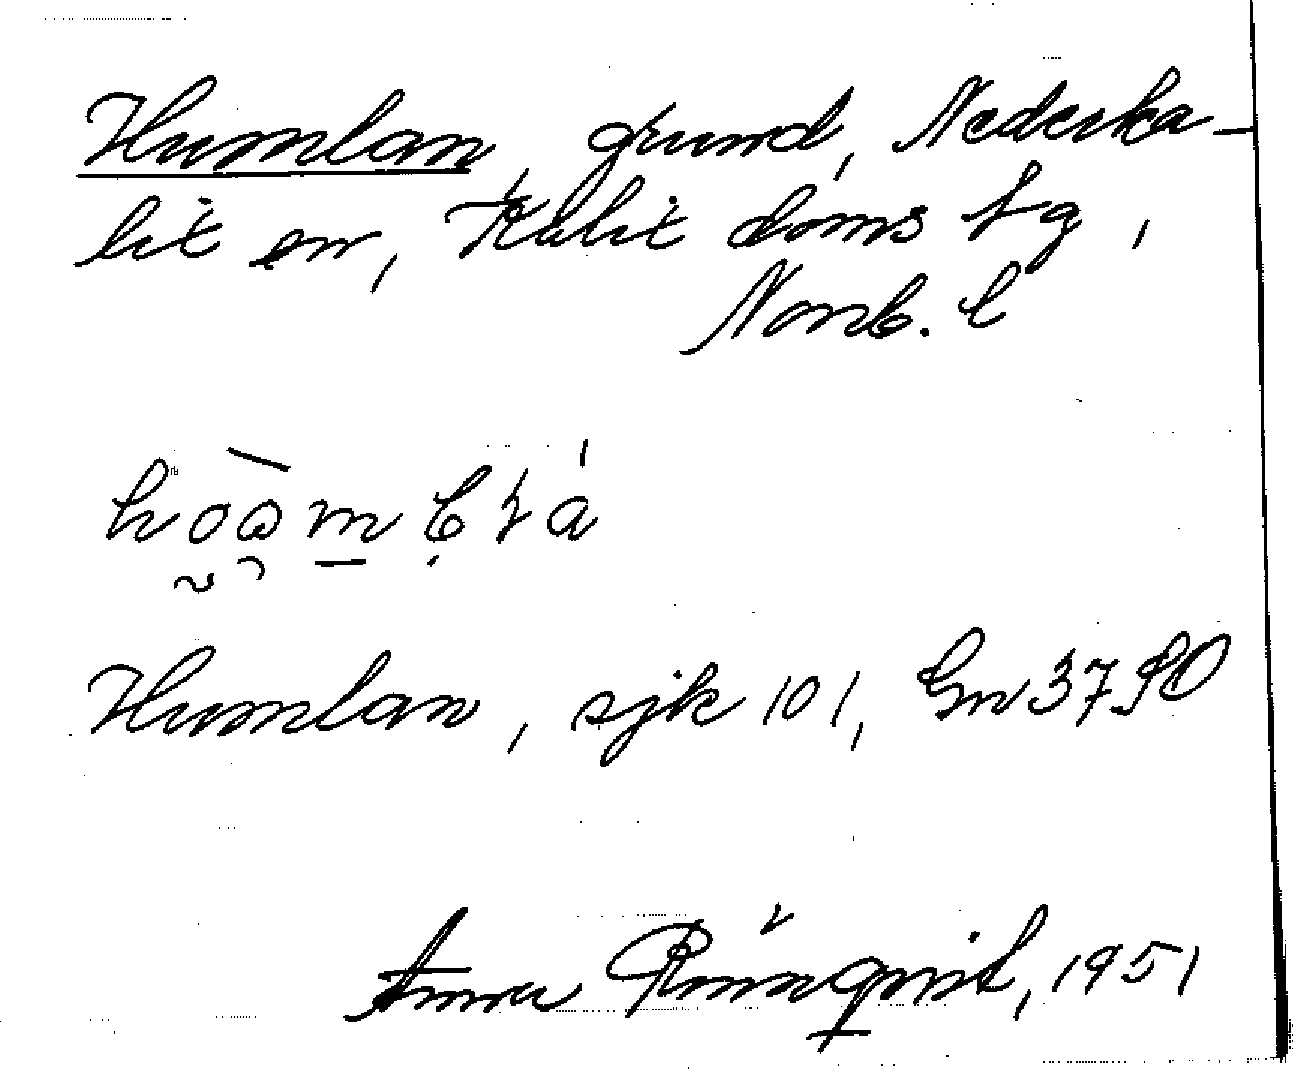 Humlan, grund, Nederka-
lix sn, Kalix doms tg,
Norrb. l
Humlan, sjk 101, Gn 3790
Anna Rönnqvist, 1951